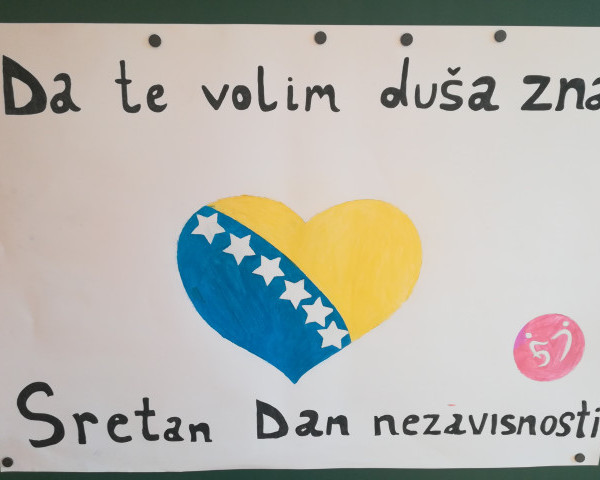 Da te volim duša zna
Sretan Dan nezavisnosti